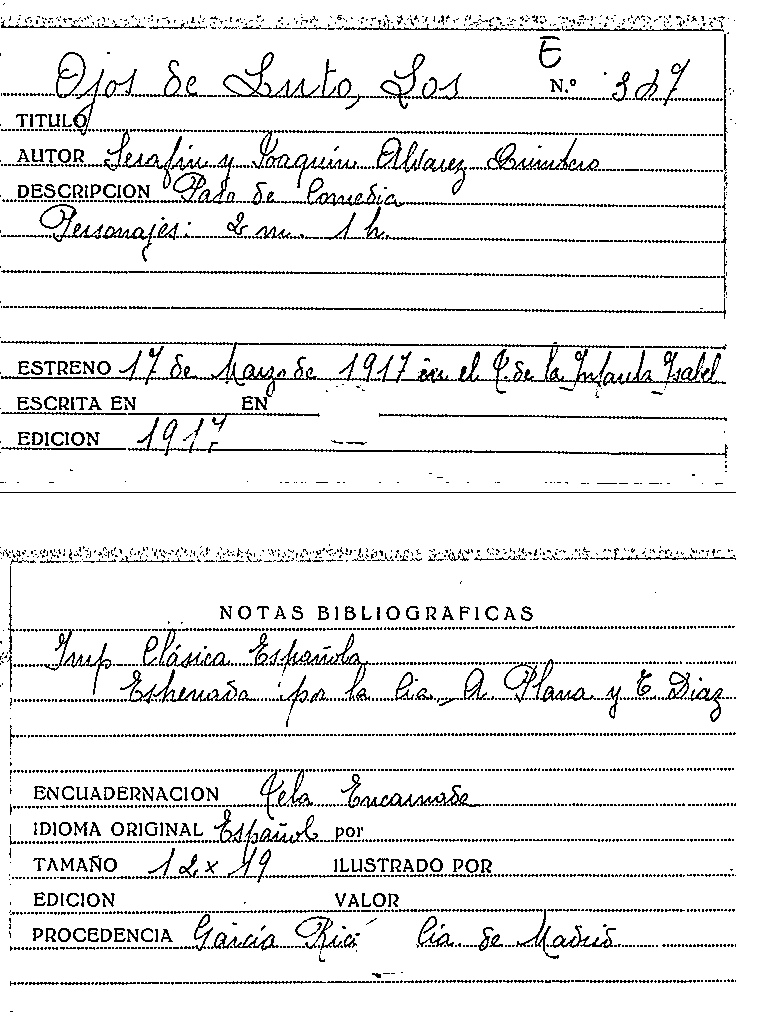 E
Ojos de Luto, Los N.º 327
TITULO
AUTOR Serafin y Joaquin Alvarez Quintero
DESCRIPCION Paso de Comedia
Personajes: 2 m. 1 h.
ESTRENO 17 de Marzo de 1917 en el T. de la Infanta Isabel
ESCRITA EN EN
EDICION 1917
NOTAS BIBLIOGRAFICAS
Imp Clásica Española
Estrenada por la Cia A. Plana y E. Diaz
ENCUADERNACION Tela Encarnada
IDIOMA ORIGINAL Español por
TAMAÑO 12 x 19 ILUSTRADO POR
EDICION VALOR
PROCEDENCIA Garcia Rico Cia. de Madrid